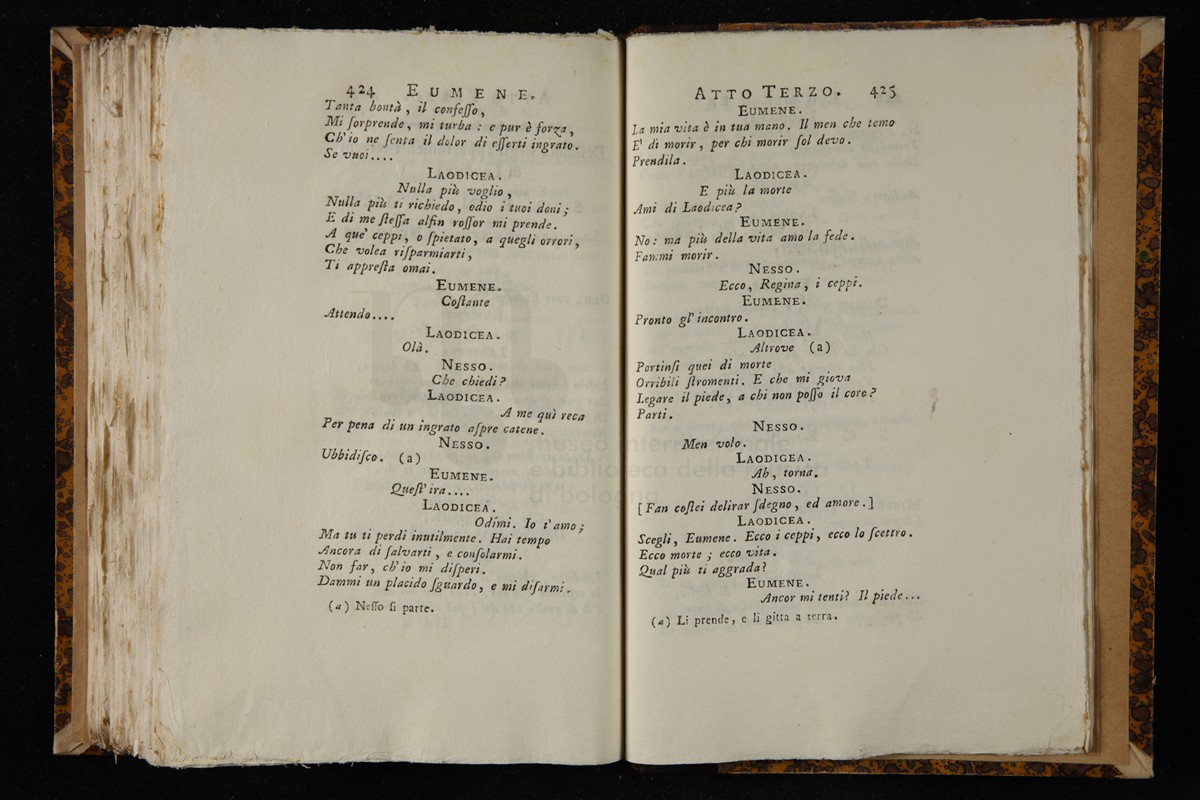 424 EUMENE.
Tanta bontà, il confeſſo,
Mi ſorprende, mi turba: e pur è forza,
Ch'io ne ſenta il dolor di eſſerti ingrato.
Se vuoi....
LAODICEA.
Nulla più voglio,
Nulla più ti richiedo, odio i tuoi doni;
E di me ſteſſa alfin roſſor mi prende.
A que' ceppi, o ſpietato, a quegli orrori,
Che volea riſparmiarti,
Ti appreſta omai.
EUMENE.
Coſtante
Attendo....
LAODICEA.
Olà.
NESSO.
Che chiedi?
LAODICEA.
A me quì reca
Per pena di un ingrato aſpre catene.
NESSO.
Ubbidiſco. (a)
EUMENE.
Queſt'ira....
LAODICEA.
Odimi. Io t'amo;
Ma tu ti perdi inutilmente. Hai tempo
Ancora di ſalvarti, e conſolarmi.
Non far, ch'io mi diſperi.
Dammi un placido ſguardo, e mi diſarmi.
(a) Neſſo ſi parte.
ATTO TERZO. 425
EUMENE.
La mia vita è in tua mano. Il men che temo
E' di morir, per chi morir ſol devo.
Prendila.
LAODICEA.
E più la morte
Ami di Laodicea?
EUMENE.
No: ma più della vita amo la fede.
Fammi morir.
NESSO.
Ecco, Regina, i ceppi.
EUMENE.
Pronto gl'incontro.
LAODICEA.
Altrove (a)
Portinſi quei di morte
Orribili ſtromenti. E che mi giova
Legare il piede, a chi non poſſo il core?
Parti.
NESSO.
Men volo.
LAODIGEA.
Ah, torna.
NESSO.
[Fan coſtei delirar ſdegno, ed amore.]
LAODICEA.
Scegli, Eumene. Ecco i ceppi, ecco lo ſcettro.
Ecco morte; ecco vita.
Qual più ti aggrada?
EUMENE.
Ancor mi tenti? Il piede...
(a) Li prende, e li gitta a terra.
museo internazionale
e biblioteca della musica
di bologna